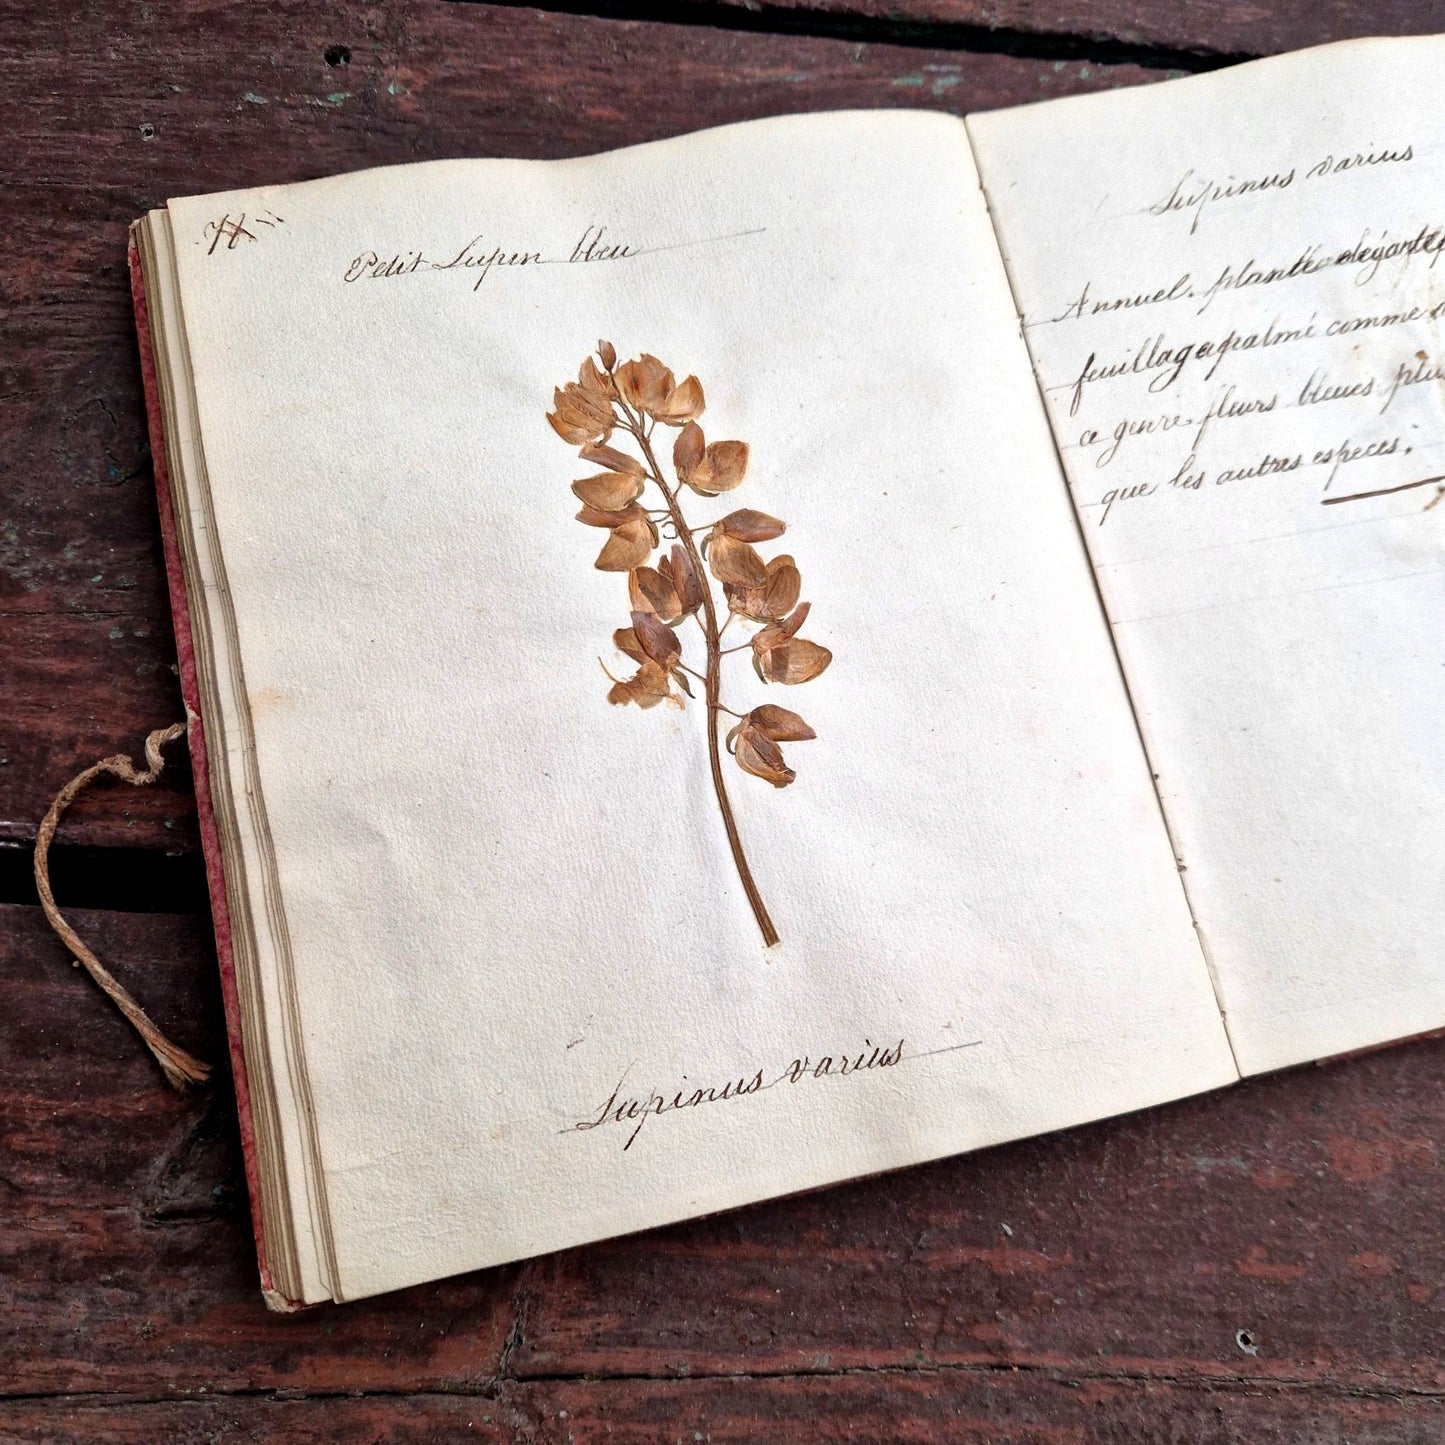 Petit Lupin bleu
Lupinus varius
Lupinus varius
Annuel. plante élégante
feuillage palmé comme
ce genre fleurs bleues plus
que les autres especes;